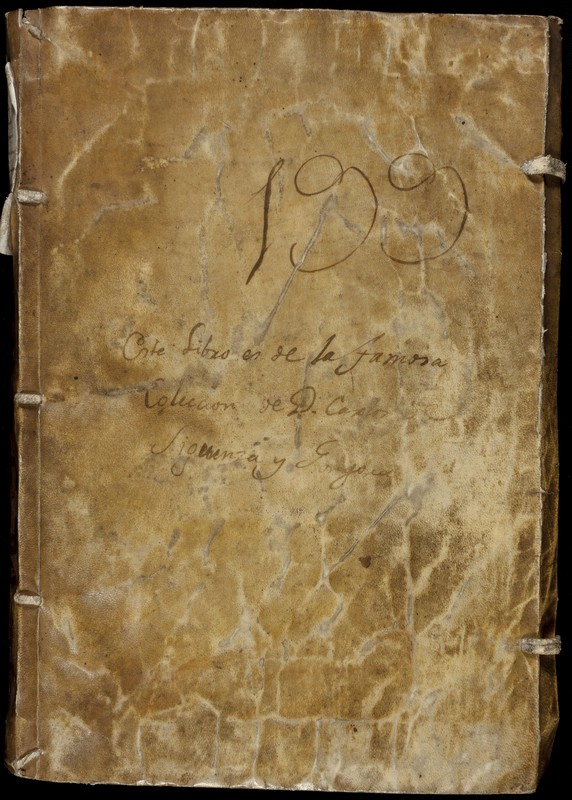 199
Este Libro es de la famosa
Coleccion de D. Carlos de
Siguenza y Gongora